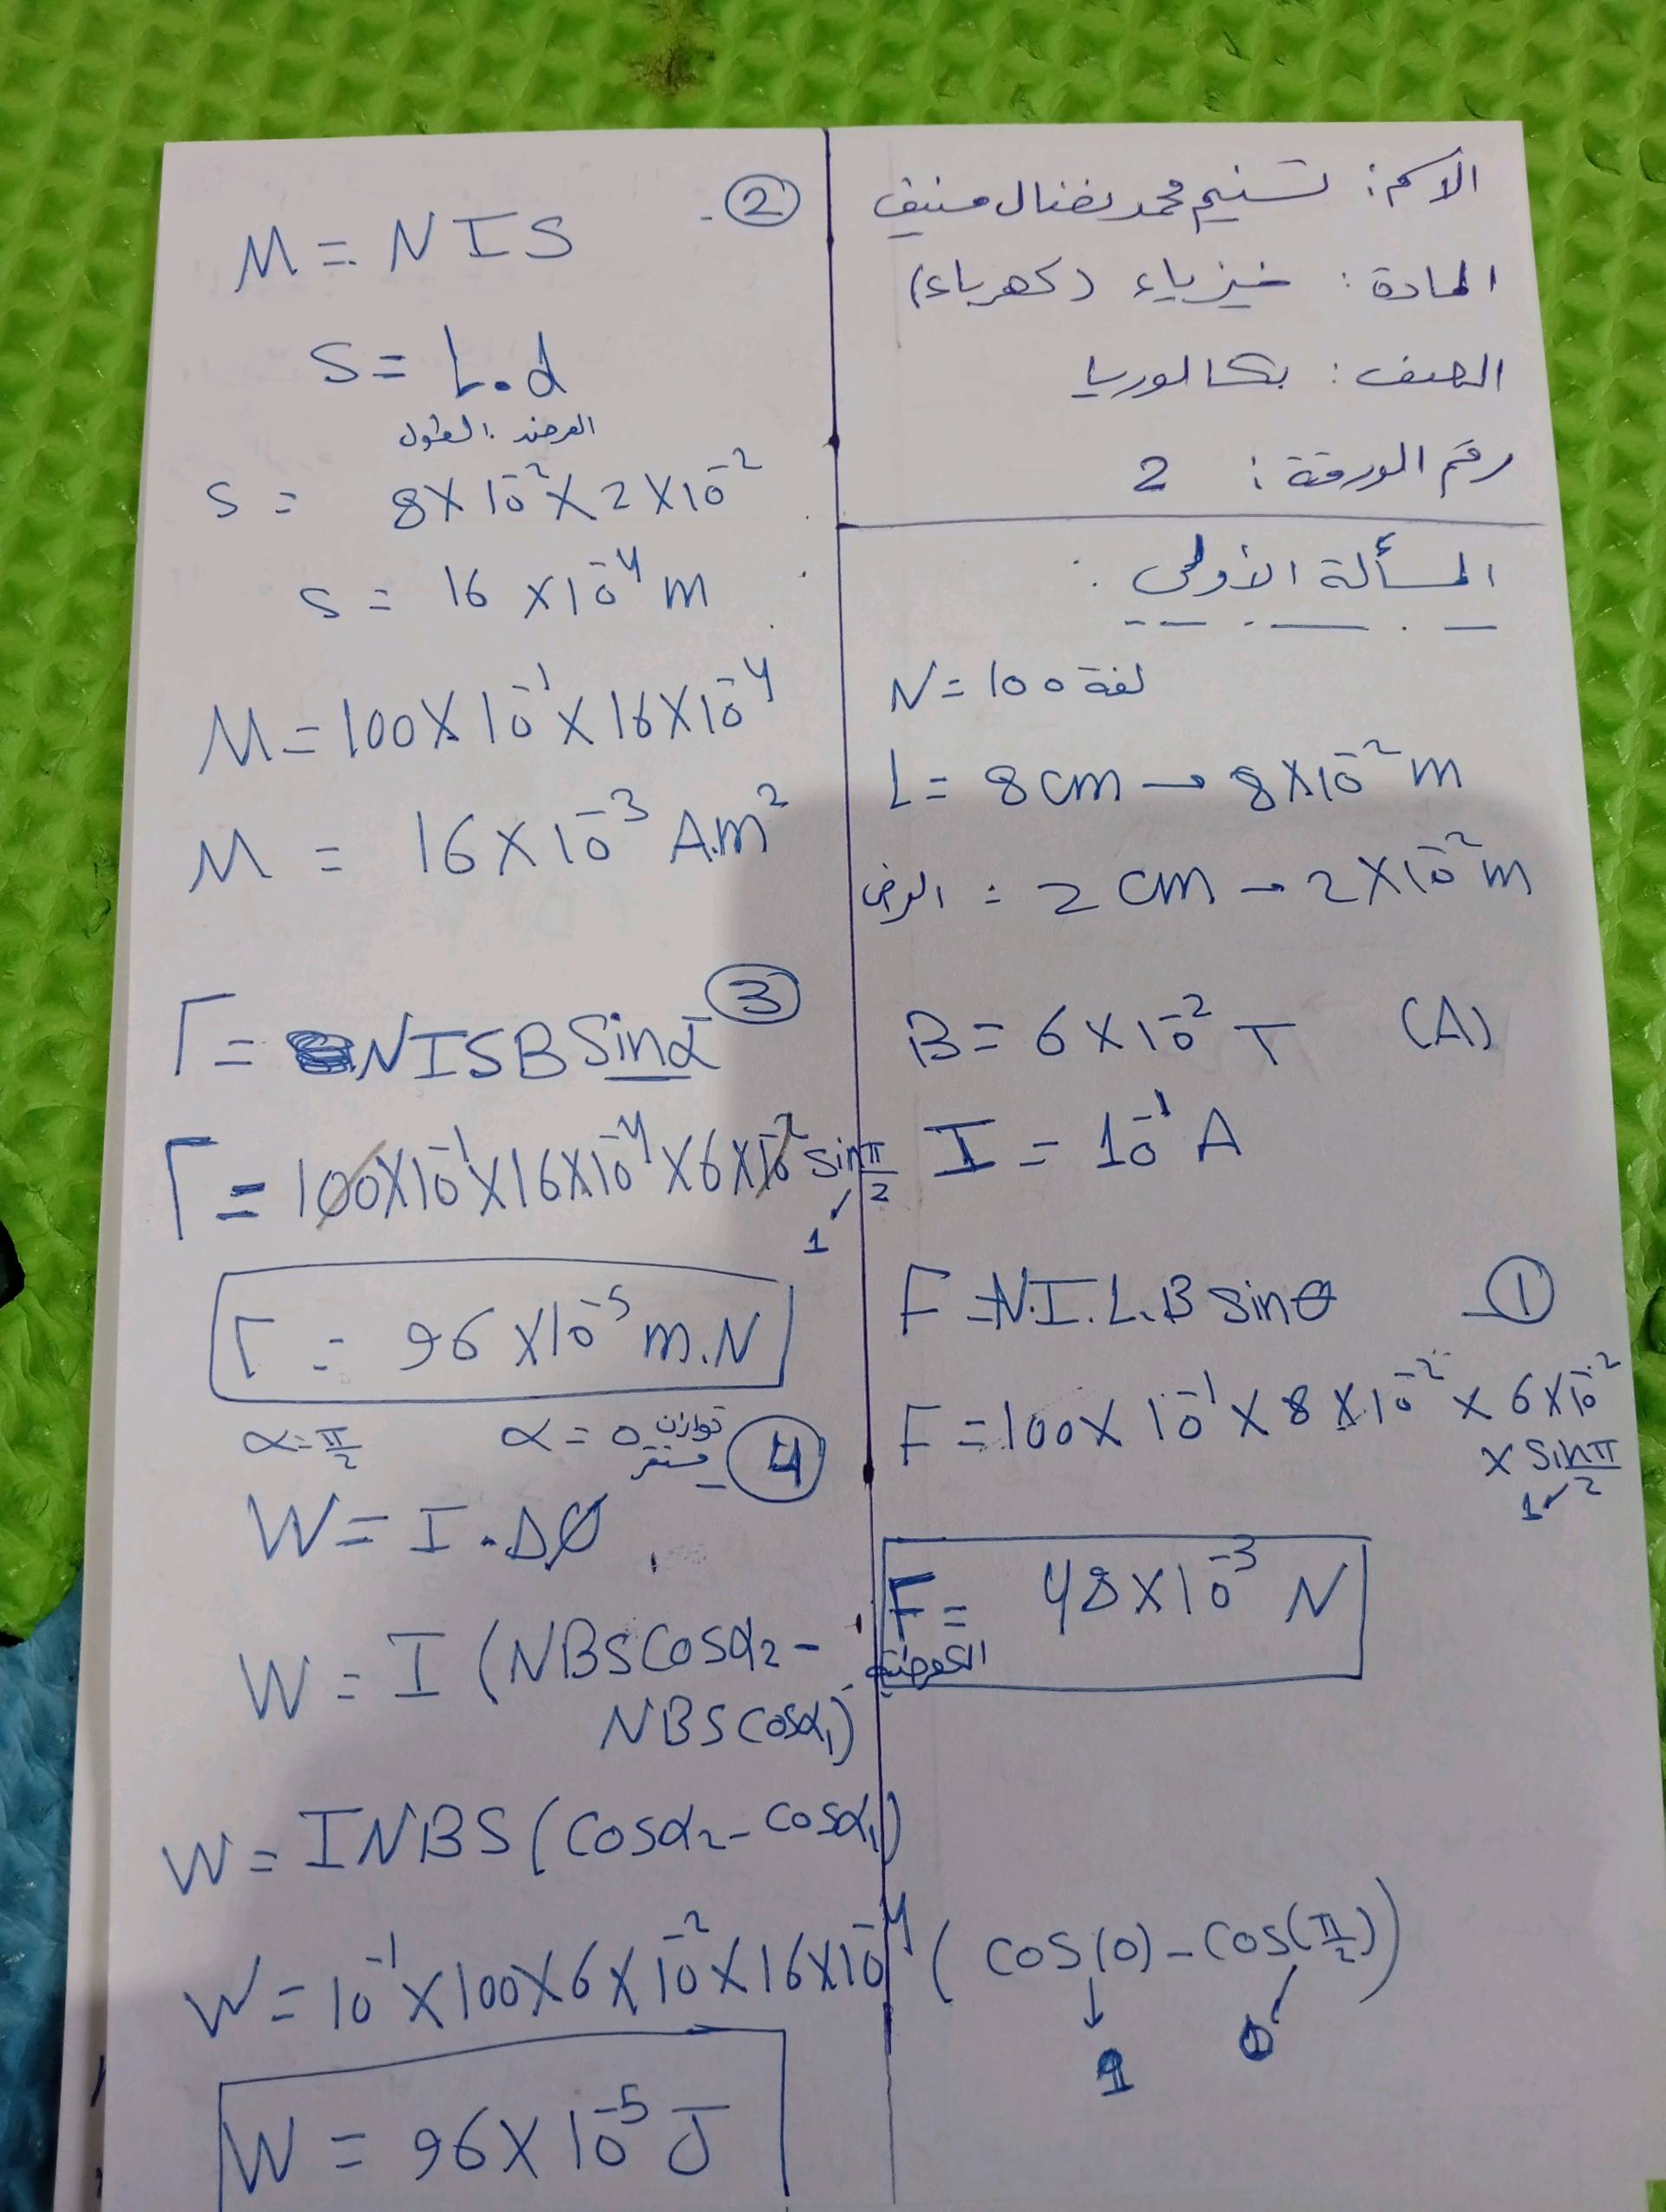 الاسم: تسنيم محمد نضال منيف
المادة: فيزياء (كهرباء)
الصف: بكالوريا
رقم الورقة: 2
المسألة الأولى:
N = 100 لفة
L = 8 cm → 8×10⁻² m
العرض = 2 cm → 2×10⁻² m
B = 6×10⁻² T (A)
I = 10⁻¹ A
①
F = N.I.L.B sinθ
F = 100 × 10⁻¹ × 8×10⁻² × 6×10⁻²
× sin π/2
1
F = 48×10⁻³ N
الكهرطيسية
②
M = NIS
S = L.d
العرض . الطول
S = 8×10⁻² × 2×10⁻²
S = 16×10⁻⁴ m
M = 100×10⁻¹×16×10⁻⁴
M = 16×10⁻³ A.m²
③
Γ = NISB sinα
Γ = 100×10⁻¹×16×10⁻⁴×6×10⁻² sin π/2
1
Γ = 96×10⁻⁵ m.N
④
α = π/2 α = 0 توازن مستقر
W = I . ΔØ
W = I (NBS cosα₂ -
NBS cosα₁)
W = INBS (cosα₂ - cosα₁)
W = 10⁻¹×100×6×10⁻²×16×10⁻⁴ (cos(0) - cos(π/2))
1 0
W = 96×10⁻⁵ J